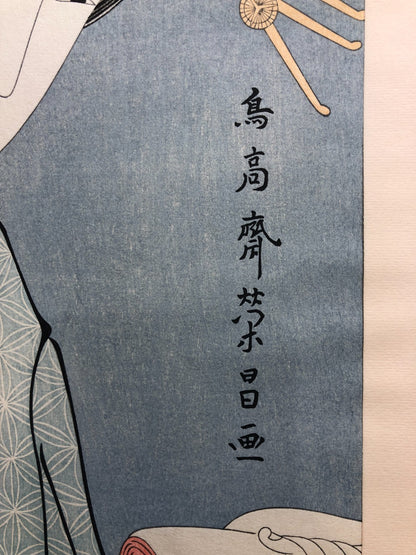 鳥高齋榮昌画